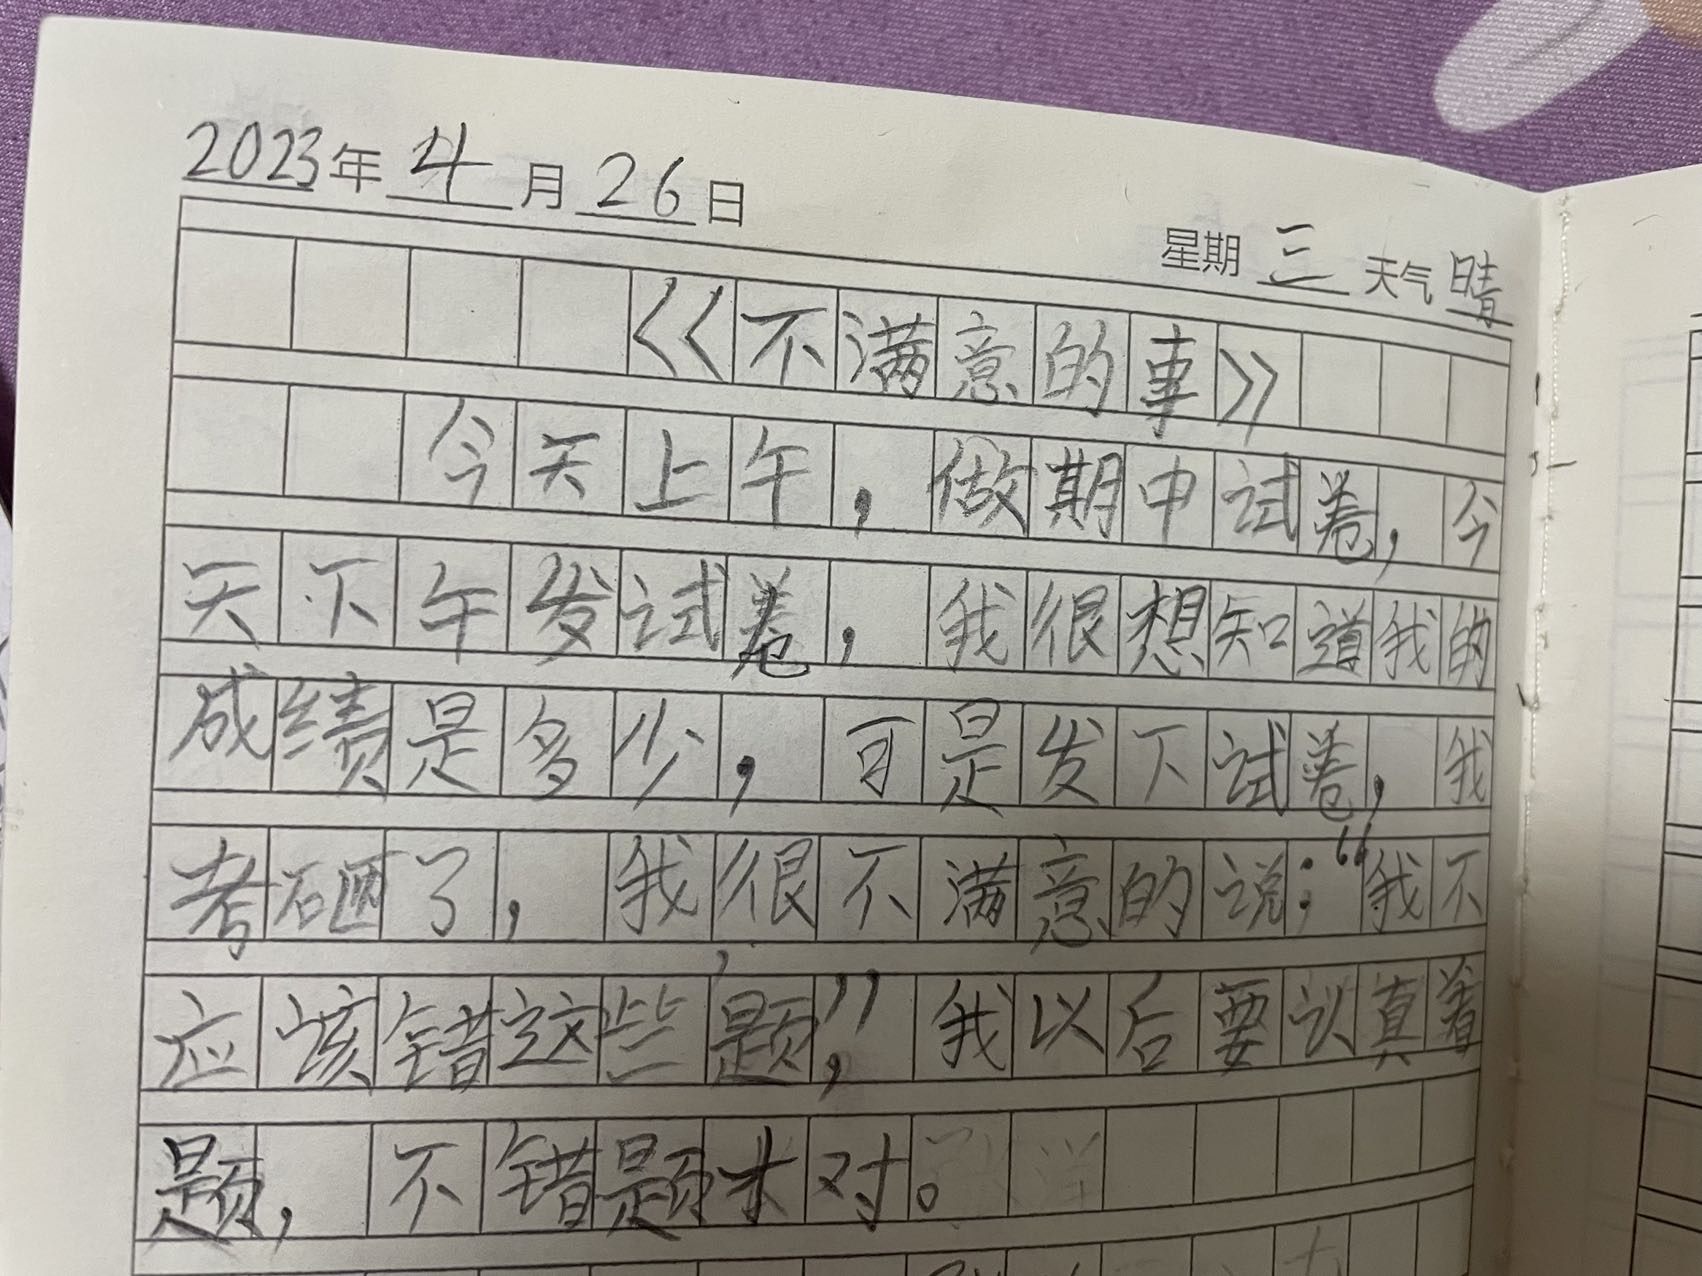 2023年 4 月 26 日
星期 三 天气 晴
《不满意的事》
今天上午，做期中试卷，今
天下午发试卷，我很想知道我的
成绩是多少，可是发下试卷，我
考砸了，我很不满意的说：“我不
应该错这些题，”我以后要认真着
题，不错题才对。